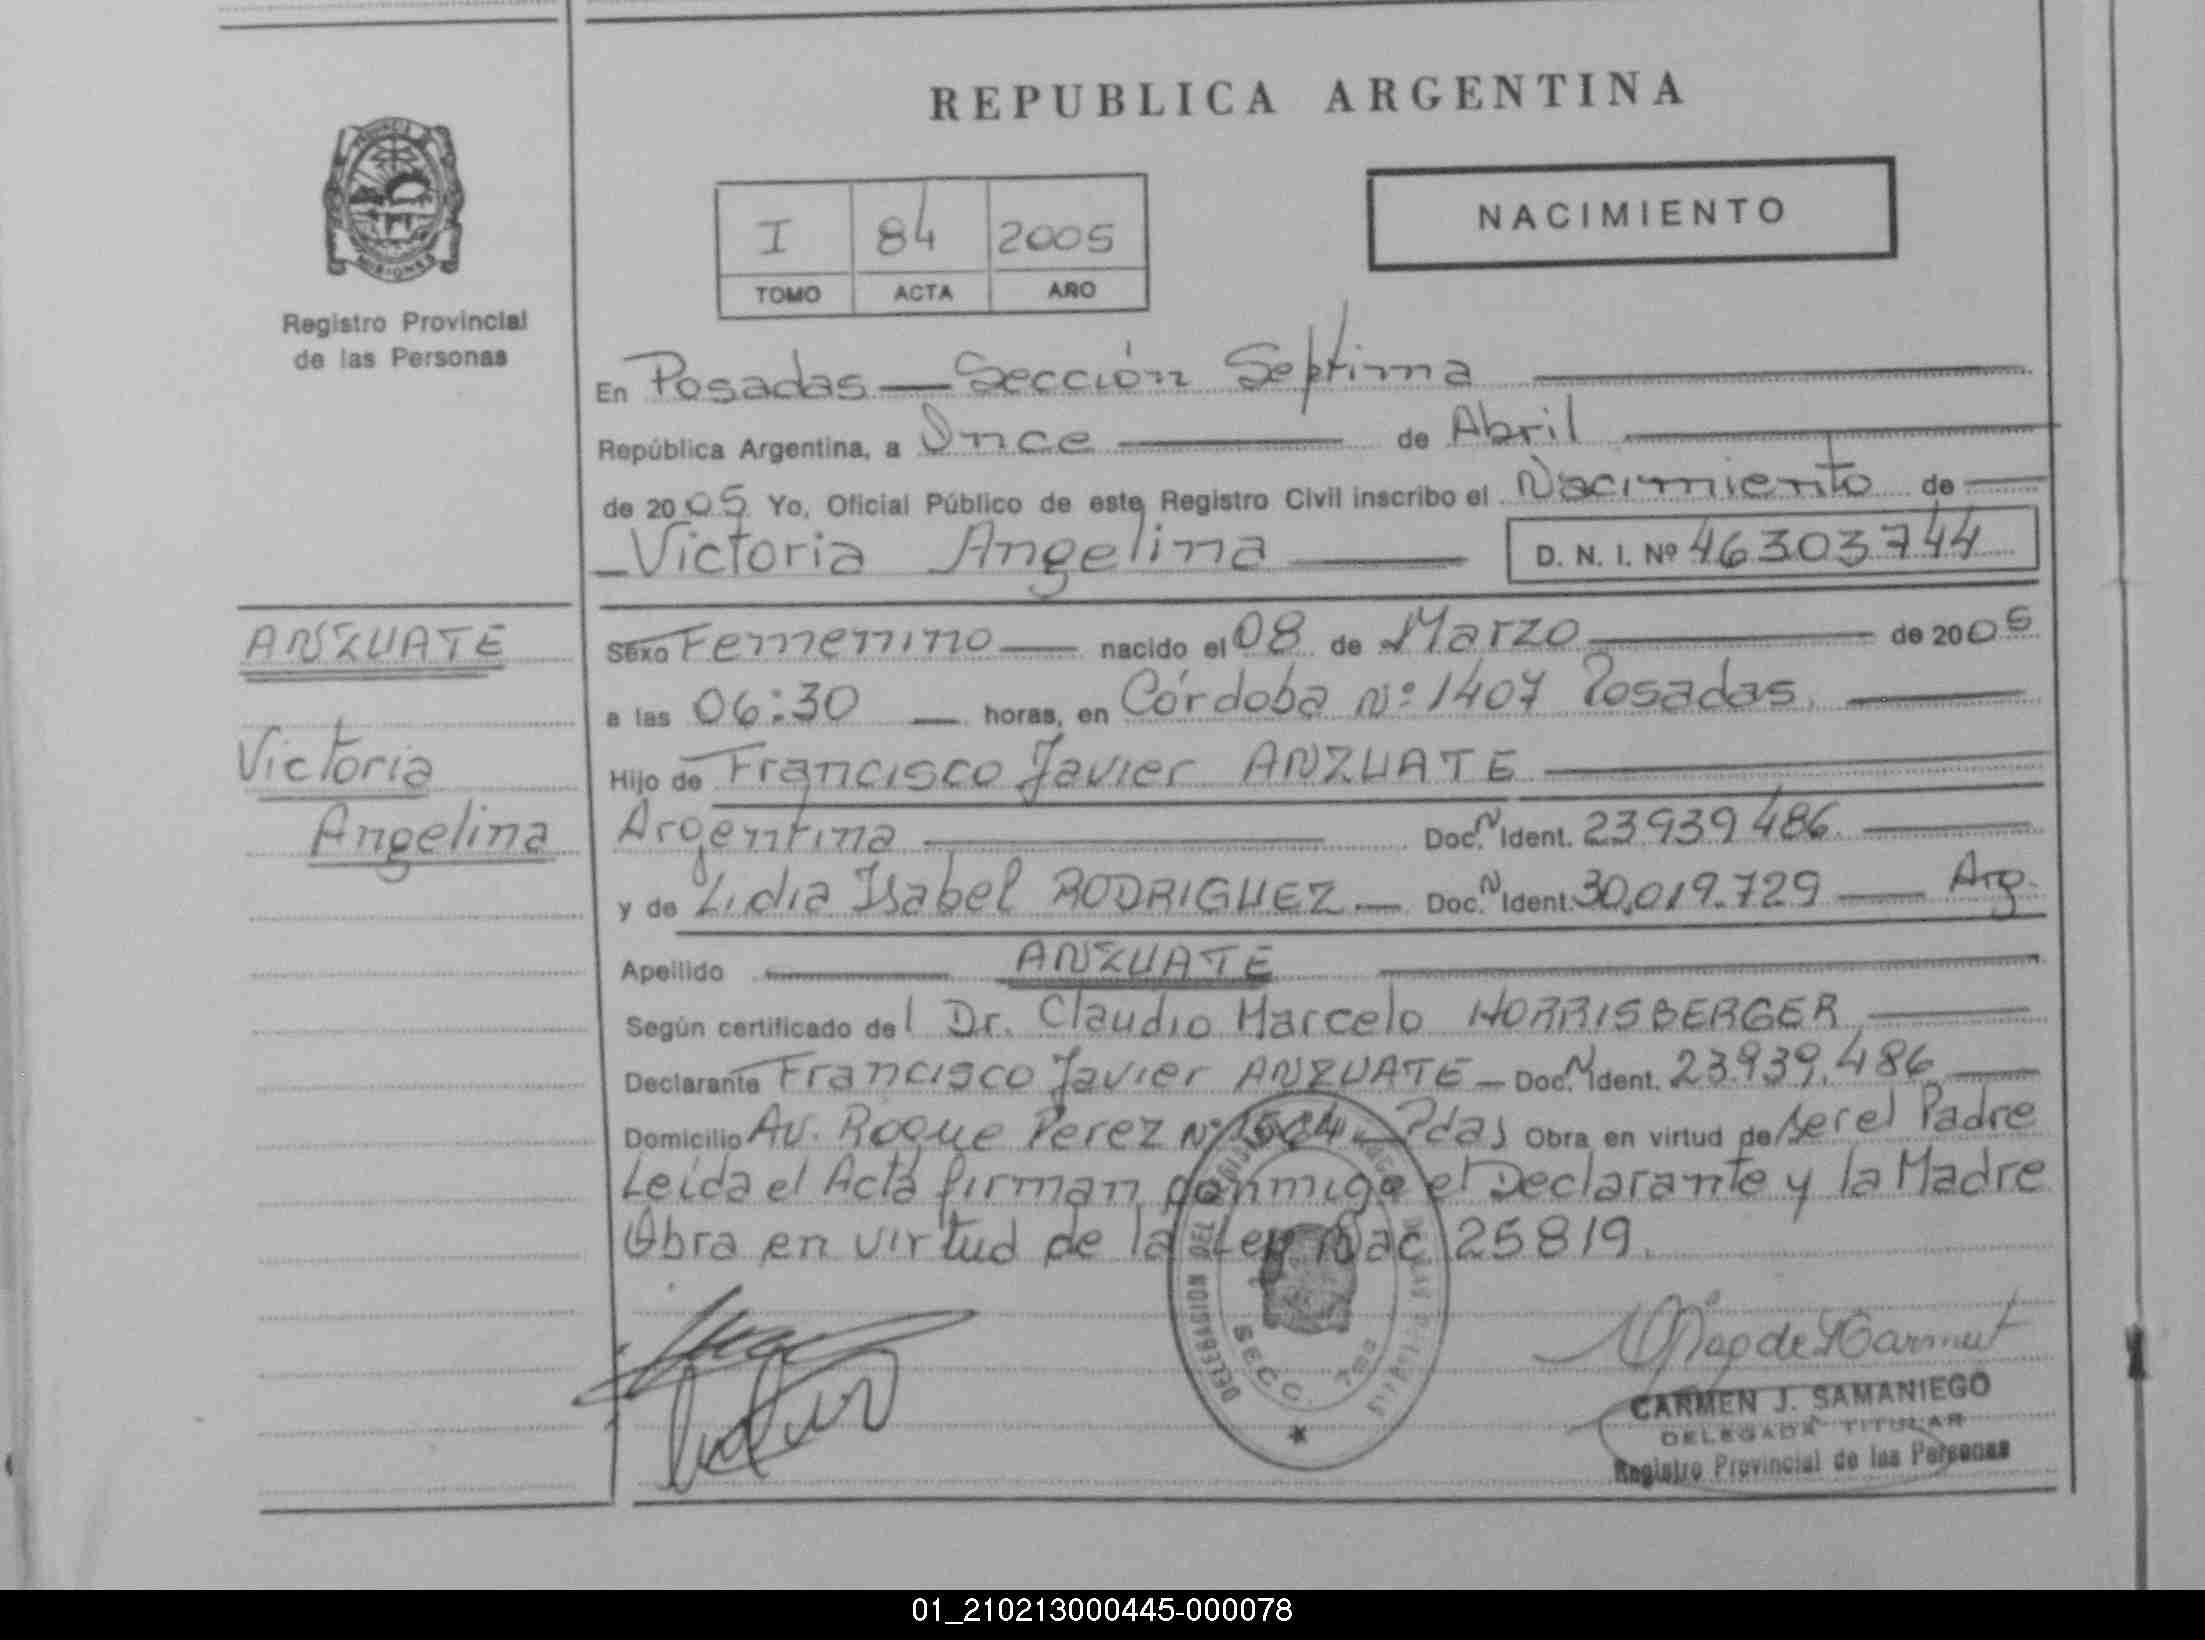 REPUBLICA ARGENTINA
NACIMIENTO
I 84 2005
TOMO ACTA AÑO
MISIONES
Registro Provincial
de las Personas
En Posadas — Sección Septima
República Argentina, a Once de Abril
de 2005 Yo, Oficial Público de este Registro Civil inscribo el Nacimiento de
Victoria Angelina D. N. I. Nº 46303744
ANZUATE
Victoria
Angelina
Sexo Femenino nacido el 08 de Marzo de 2005
a las 06:30 horas, en Córdoba Nº 1407 Posadas.
Hijo de Francisco Javier ANZUATE
Argentina Doc. N Ident. 23939486
y de Lidia Isabel RODRIGUEZ Doc. N Ident. 30.019.729 Arg.
Apellido ANZUATE
Según certificado del Dr. Claudio Marcelo HORRISBERGER
Declarante Francisco Javier ANZUATE Doc. N Ident. 23.939.486
Domicilio Av. Roque Perez Nº Pdas Obra en virtud de ser el Padre
Leída el Acta firman conmigo el Declarante y la Madre
Obra en virtud de la Ley Nac 25819.
DELEGACION DEL
SECC. 7ma
CARMEN J. SAMANIEGO
DELEGADA TITULAR
Registro Provincial de las Personas
01_210213000445-000078